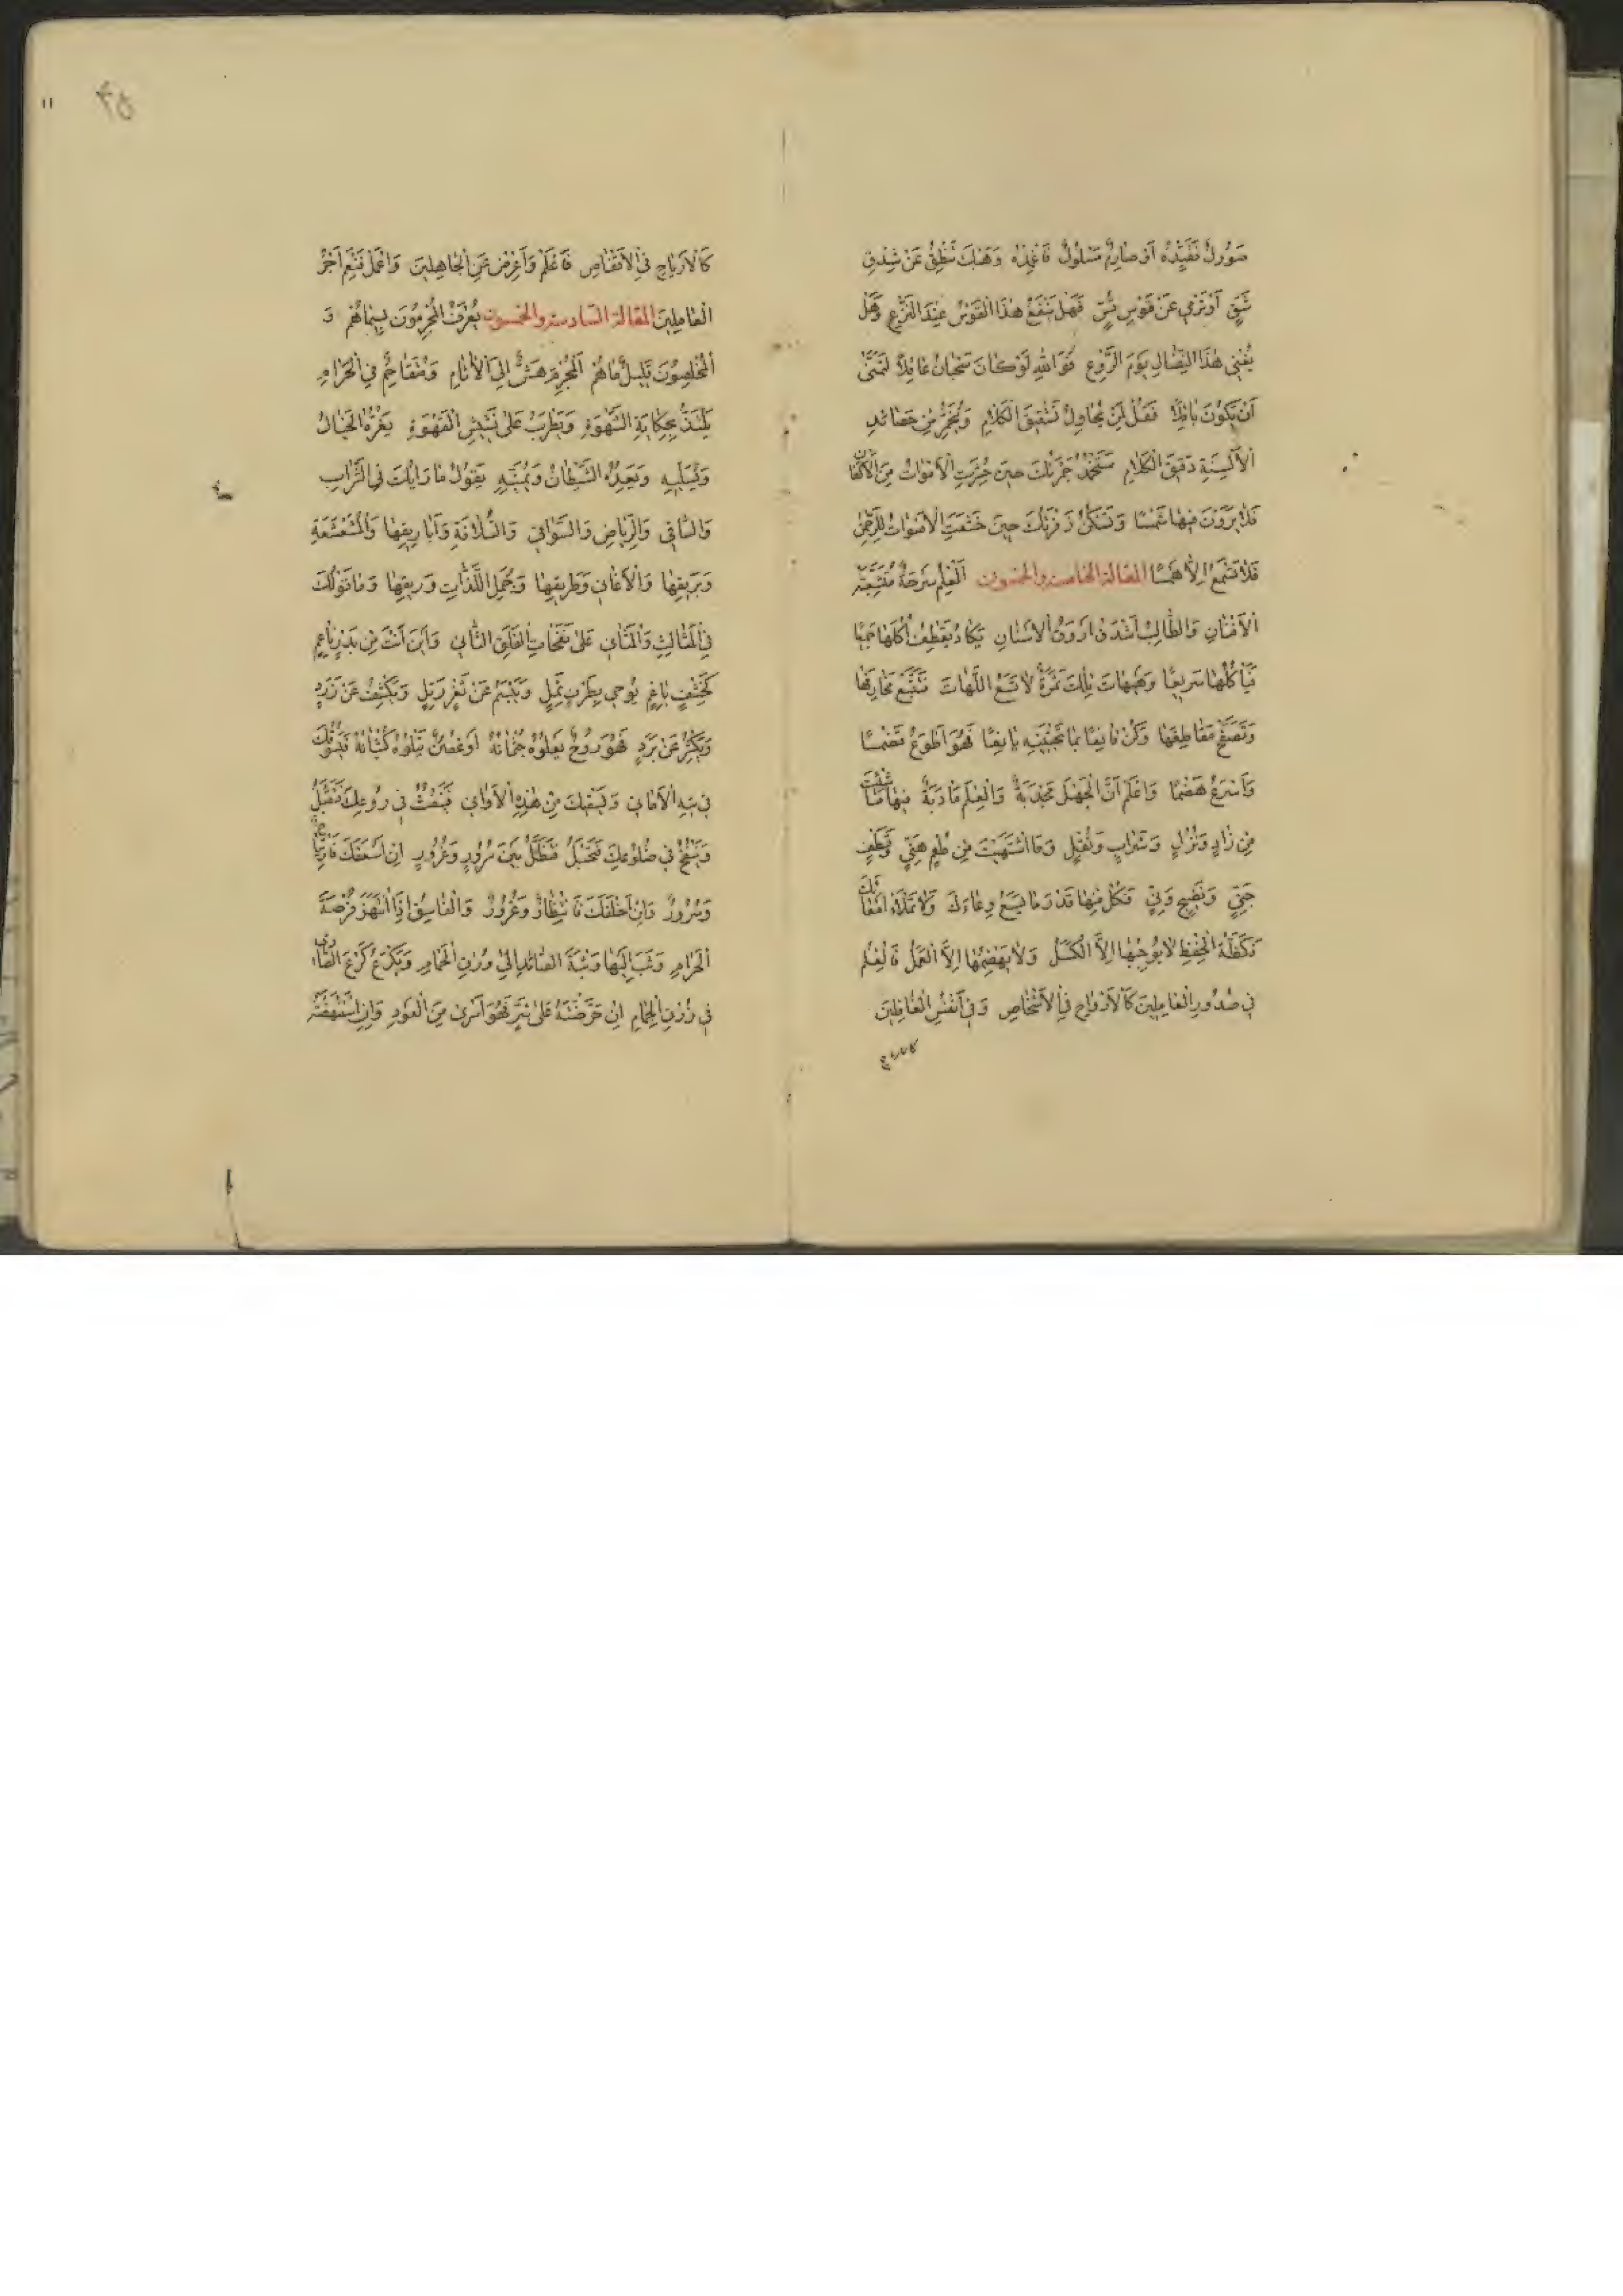 صَؤُولٌ فَقَيِّدْهُ اَوْ صَارِمٌ مَسْلُولٌ فَاغْمِدْهُ وَهَبْكَ تَنْطِقُ عَنْ شِدْقٍ
اَوْ تَرْمِي عَنْ قَوْسِ فَهَلْ يَنْفَعُ هٰذَا الْقَوْسُ عِنْدَ النَّزْعِ وَهَلْ
يُغْنِي هٰذَا النِّضَالُ يَوْمَ الرَّوْعِ فَوَاللهِ لَوْ كَانَ سَحْبَانُ عَاقِلاً لَتَمَنَّى
اَنْ يَكُونَ بَاقِلاً فَقُلْ لِمَنْ يُحَاوِلُ تَشْقِيقَ الْكَلَامِ مِنْ حَصَائِدِ
الْاَلْسِنَةِ دَقَقَ الْكَلَامِ سَتَخْمُدُ جَمْرَتُكَ حِينَ حُشِرَتِ الْاَمْوَاتُ مِنَ الْاَكْفَانِ
فَلَا يَرَوْنَ فِيهَا شَمْسًا وَتَسْكُنُ زَفْرَتُكَ حِينَ خَشَعَتِ الْاَصْوَاتُ لِلرَّحْمٰنِ
فَلَا تَسْمَعُ اِلَّا هَمْسًا المقالة الخامسة والخمسون اَلْعِلْمُ سَرْحَةٌ مُتَشَعِّبَةُ
الْاَفْنَانِ وَالطَّالِبُ اَشْدَقُ اَرْوَقُ الْاَسْنَانِ يَكَادُ يَقْطِفُ اُكُلَهَا جَمِيعًا
فَيَأْكُلُهَا سَرِيعًا وَهَيْهَاتَ تِلْكَ ثَمَرَةٌ لَا تَسَعُ اللَّهَاتَ فَتَتَبَّعْ مَخَارِفَهَا
وَتَصَفَّحْ مَقَاطِفَهَا وَكُنْ قَانِعًا بِمَا تَجْتَنِيهِ يَانِعًا فَهُوَ اَطْوَعُ قَضْمًا
وَاَسْرَعُ هَضْمًا وَاعْلَمْ اَنَّ الْجَهْلَ مَجْدَبَةٌ وَالْعِلْمَ مَأْدَبَةٌ فِيهَا مَا شِئْتَ
مِنْ زَادٍ وَنُزُلٍ وَشَرَابٍ وَنُقْلٍ وَمَا اشْتَهَيْتَ مِنْ طُعْمٍ هَنِيٍّ وَقِطْفٍ
جَنِيٍّ وَنَضِيجٍ وَنِيٍّ فَكُلْ مِنْهَا قَدْرَ مَا يَسَعُ وِعَاءَكَ وَلَا تَمْلَأْ اَمْعَاءَكَ
فَكِظَّةُ الْحِفْظِ لَا يُوجِبُهَا اِلَّا الْكَسَلُ وَلَا يَهْضِمُهَا اِلَّا الْعَمَلُ فَالْعِلْمُ
فِي صُدُورِ الْعَامِلِينَ كَالْاَرْوَاحِ فِي الْاَشْخَاصِ وَفِي اَنْفُسِ الْغَافِلِينَ
كالارياح
كَالْاَرْيَاحِ فِي الْاَقْفَاصِ فَاعْلَمْ وَاَعْرِضْ عَنِ الْجَاهِلِينَ وَاعْمَلْ فَنِعْمَ اَجْرُ
الْعَامِلِينَ المقالة السادسة والخمسون يُعْرَفُ الْمُجْرِمُونَ بِسِيمَاهُمْ وَ
الْمُخْلِصُونَ قَلِيلٌ مَا هُمْ اَلْمُجْرِمُ هَشٌّ اِلَى الْاَثَامِ وَمُتَقَاحِمٌ فِي الْحَرَامِ
يَلْتَذُّ بِحِكَايَةِ الشَّهْوَةِ وَيَطْرَبُ عَلَى نَشِيشِ الْقَهْوَةِ يَغُرُّهُ الْخَيَالُ
وَيُسَلِّيهِ وَيَعِدُهُ الشَّيْطَانُ وَيُمَنِّيهِ يَقُولُ مَا رَأْيُكَ فِي الشَّرَابِ
وَالسَّاقِي وَالرِّيَاضِ وَالسَّوَاقِي وَالسُّلَافَةِ وَاَبَارِيقِهَا وَالْمُشَعْشَعَةِ
وَبَرِيقِهَا وَالْاَغَانِي وَطَرِيقِهَا وَجُمَلِ اللَّذَّاتِ وَرِيقِهَا وَمَا قَوْلُكَ
فِي الْمَثَالِثِ وَالْمَثَانِي عَلَى نَفَحَاتِ الْفَلَقِ الثَّانِي وَاَيْنَ اَنْتَ مِنْ بَدْرٍ نَاعِمٍ
كَخِشْفٍ بَاغِمٍ يُوحِي بِطَرْفٍ ثَمِلٍ وَيَبْسِمُ عَنْ ثَغْرٍ رَتِلٍ وَيَكْشِفُ عَنْ زَرَدٍ
وَيَكْشِرُ عَنْ بَرَدٍ فَهُوَ رُوحٌ يَعْلُوهُ جُثْمَانُهُ اَوْ غُصْنٌ يَتْلُوهُ كُثْبَانُهُ
فِي تِيهِ الْاَمَانِي وَيَسْقِيكَ مِنْ هٰذِهِ الْاَوَانِي فَيَنْفُثُ فِي رُوعِكَ فَتَقْبَلُ
وَيَنْفُخُ فِي ضُلُوعِكَ فَتَحْبَلُ فَتَظَلُّ بَيْنَ سُرُورٍ وَغُرُورٍ اِنْ اَسْعَفَكَ فَارْتِيَاحٌ
وَسُرُورٌ وَاِنْ اَخْلَفَكَ فَانْتِظَارٌ وَغُرُورٌ وَالْفَاسِقُ اِذَا انْتَهَزَ فُرْصَةَ
الْحَرَامِ وَثَبَ اِلَيْهَا وَثْبَةَ الصَّائِدِ اِلَى وُرْقِ الْحَمَامِ وَيَكْرَعُ كَرْعَ الصَّادِي
فِي زُرْقِ الْجِمَامِ اِنْ حَرَّضْتَهُ عَلَى شَرٍّ فَهُوَ اَسْرَى مِنَ وَاِنِ اسْتَنْهَضْتَهُ